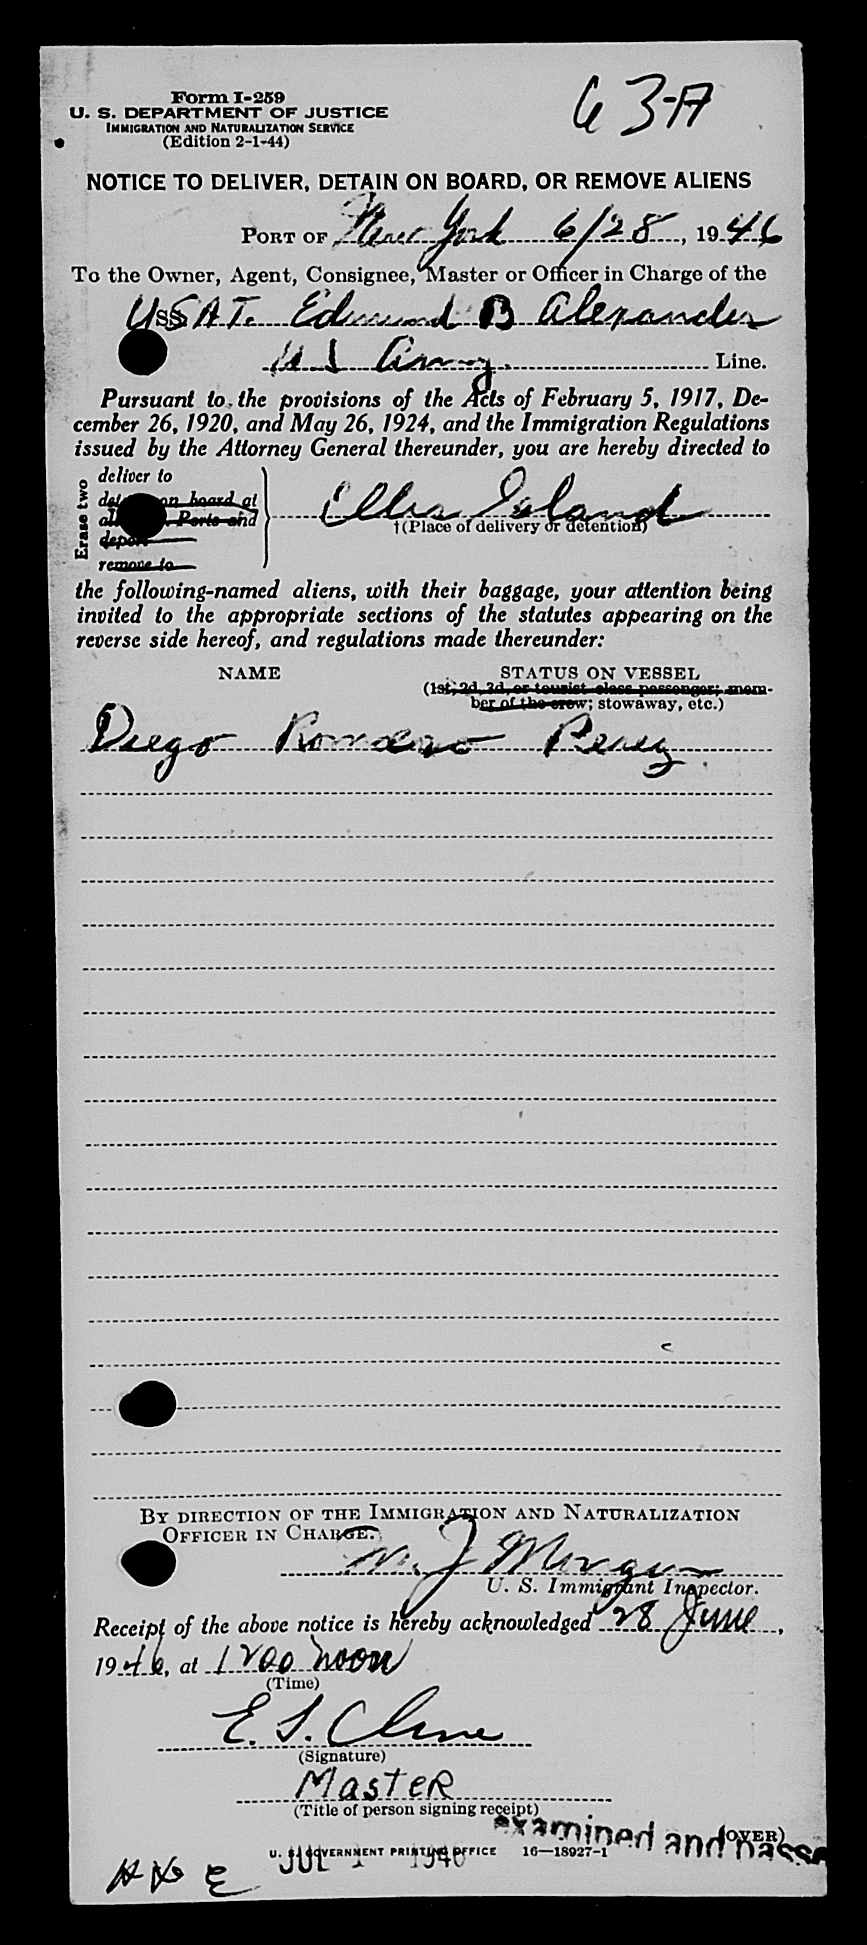 Form I-259
U. S. DEPARTMENT OF JUSTICE
IMMIGRATION AND NATURALIZATION SERVICE
(Edition 2-1-44)
63-A
NOTICE TO DELIVER, DETAIN ON BOARD, OR REMOVE ALIENS
PORT OF New York 6/28, 1946
To the Owner, Agent, Consignee, Master or Officer in Charge of the
SS USAT. Edmund B Alexander
U S Army. Line.
Pursuant to the provisions of the Acts of February 5, 1917, De-
cember 26, 1920, and May 26, 1924, and the Immigration Regulations
issued by the Attorney General thereunder, you are hereby directed to
Erase two
deliver to
on board at
Ports and
remove to
Ellis Island
†(Place of delivery or detention)
the following-named aliens, with their baggage, your attention being
invited to the appropriate sections of the statutes appearing on the
reverse side hereof, and regulations made thereunder:
NAME STATUS ON VESSEL
(1st, 2d, 3d, or tourist class passenger; mem-
ber of the crew; stowaway, etc.)
Diego Romero Perez
BY DIRECTION OF THE IMMIGRATION AND NATURALIZATION
OFFICER IN CHARGE.
J Morgan
U. S. Immigrant Inspector.
Receipt of the above notice is hereby acknowledged 28 June,
1946, at 1200 noon
(Time)
E. S. Cline
(Signature)
Master
(Title of person signing receipt)
(OVER)
examined and passe
U. S. GOVERNMENT PRINTING OFFICE 16—18927-1
JUL 1 1946